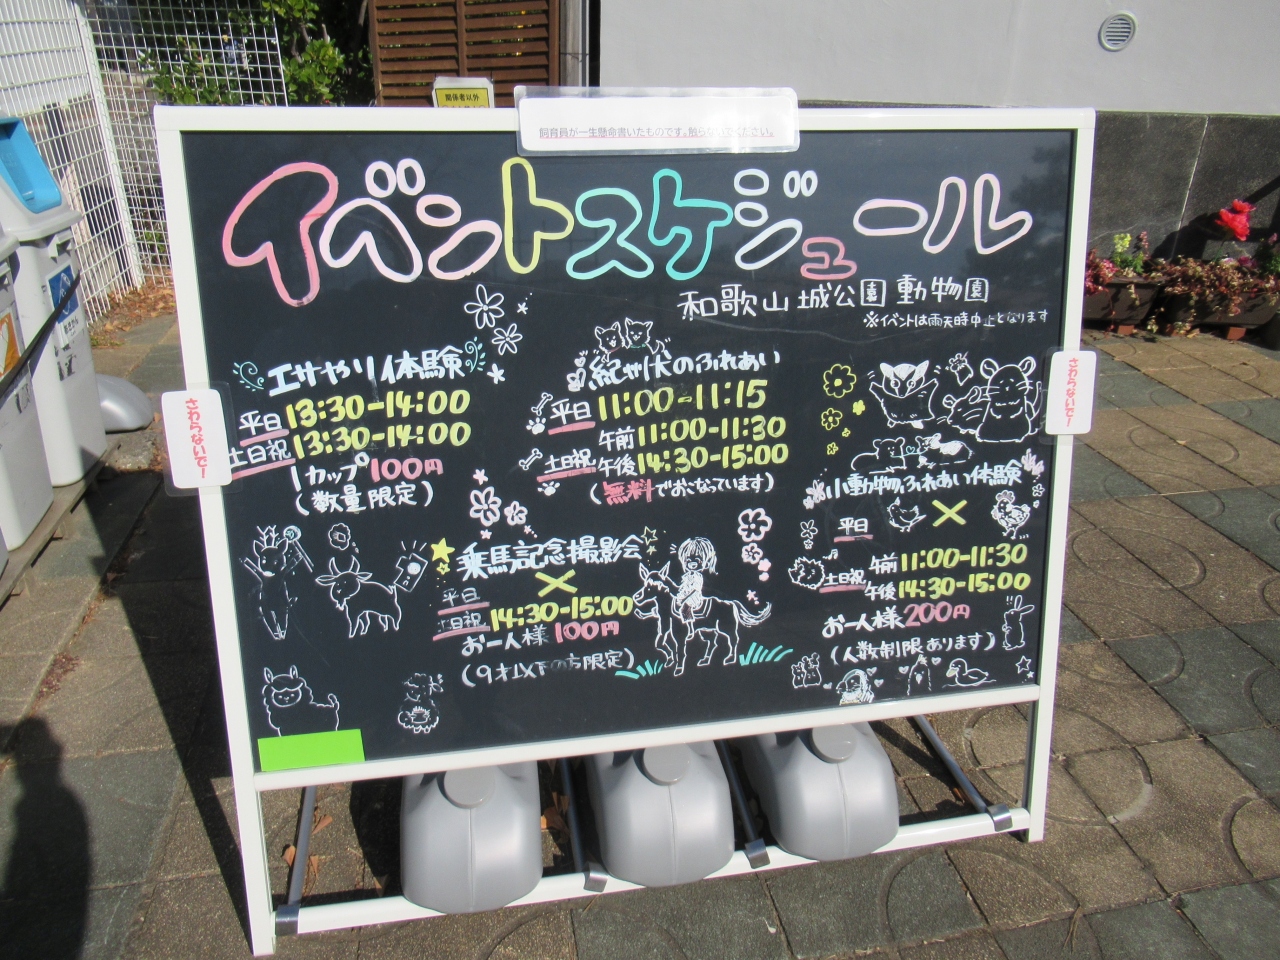 関係者以外
飼育員が一生懸命書いたものです。触らないでください。
イベントスケジュール
和歌山城公園動物園
※イベントは雨天時中止となります
さわらないで!
さわらないで!
エサやり体験
平日 13:30-14:00
土日祝 13:30-14:00
1カップ100円
(数量限定)
紀州犬のふれあい
平日 11:00-11:15
午前11:00-11:30
土日祝 午後14:30-15:00
(無料でおこなっています)
小動物ふれあい体験
平日 ×
午前11:00-11:30
土日祝 午後14:30-15:00
お一人様200円
(人数制限あります)
乗馬記念撮影会
平日 ×
土日祝 14:30-15:00
お一人様100円
(9才以下の方限定)